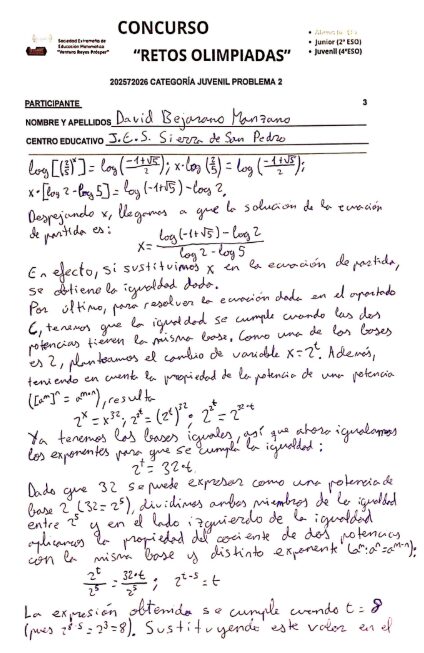 CONCURSO
Sociedad Extremeña de
Educación Matemática
"Ventura Reyes Prósper"
"RETOS OLIMPIADAS"
• Junior (2º ESO)
• Juvenil (4ºESO)
202572026 CATEGORÍA JUVENIL PROBLEMA 2
PARTICIPANTE 3
NOMBRE Y APELLIDOS David Bejarano Manzano
CENTRO EDUCATIVO I.E.S. Sierra de San Pedro
log[(2/5)^x] = log((-1+√5)/2); x·log(2/5) = log((-1+√5)/2);
x·[log 2 - log 5] = log(-1+√5) - log 2,
Despejando x, llegamos a que la solución de la ecuación
de partida es:
x = (log(-1+√5) - log 2)/(log 2 - log 5)
En efecto, si sustituimos x en la ecuación de partida,
se obtiene la igualdad dada.
Por último, para resolver la ecuación dada en el apartado
C, tenemos que la igualdad se cumple cuando las dos
potencias tienen la misma base. Como una de las bases
es 2, planteamos el cambio de variable x=2^t. Además,
teniendo en cuenta la propiedad de la potencia de una potencia
([a^m]^n = a^(m·n)), resulta
2^x = x^32; 2^(2^t) = (2^t)^32; 2^(2^t) = 2^(32·t)
Ya tenemos las bases iguales, así que ahora igualamos
los exponentes para que se cumpla la igualdad:
2^t = 32·t.
Dado que 32 se puede expresar como una potencia de
base 2 (32=2^5), dividimos ambos miembros de la igualdad
entre 2^5 y en el lado izquierdo de la igualdad
aplicamos la propiedad del cociente de dos potencias
con la misma base y distinto exponente (a^m:a^n=a^(m-n)):
2^t/2^5 = 32·t/2^5; 2^(t-5) = t
La expresión obtenida se cumple cuando t = 8
(pues 2^(8-5)=2^3=8). Sustituyendo este valor en el